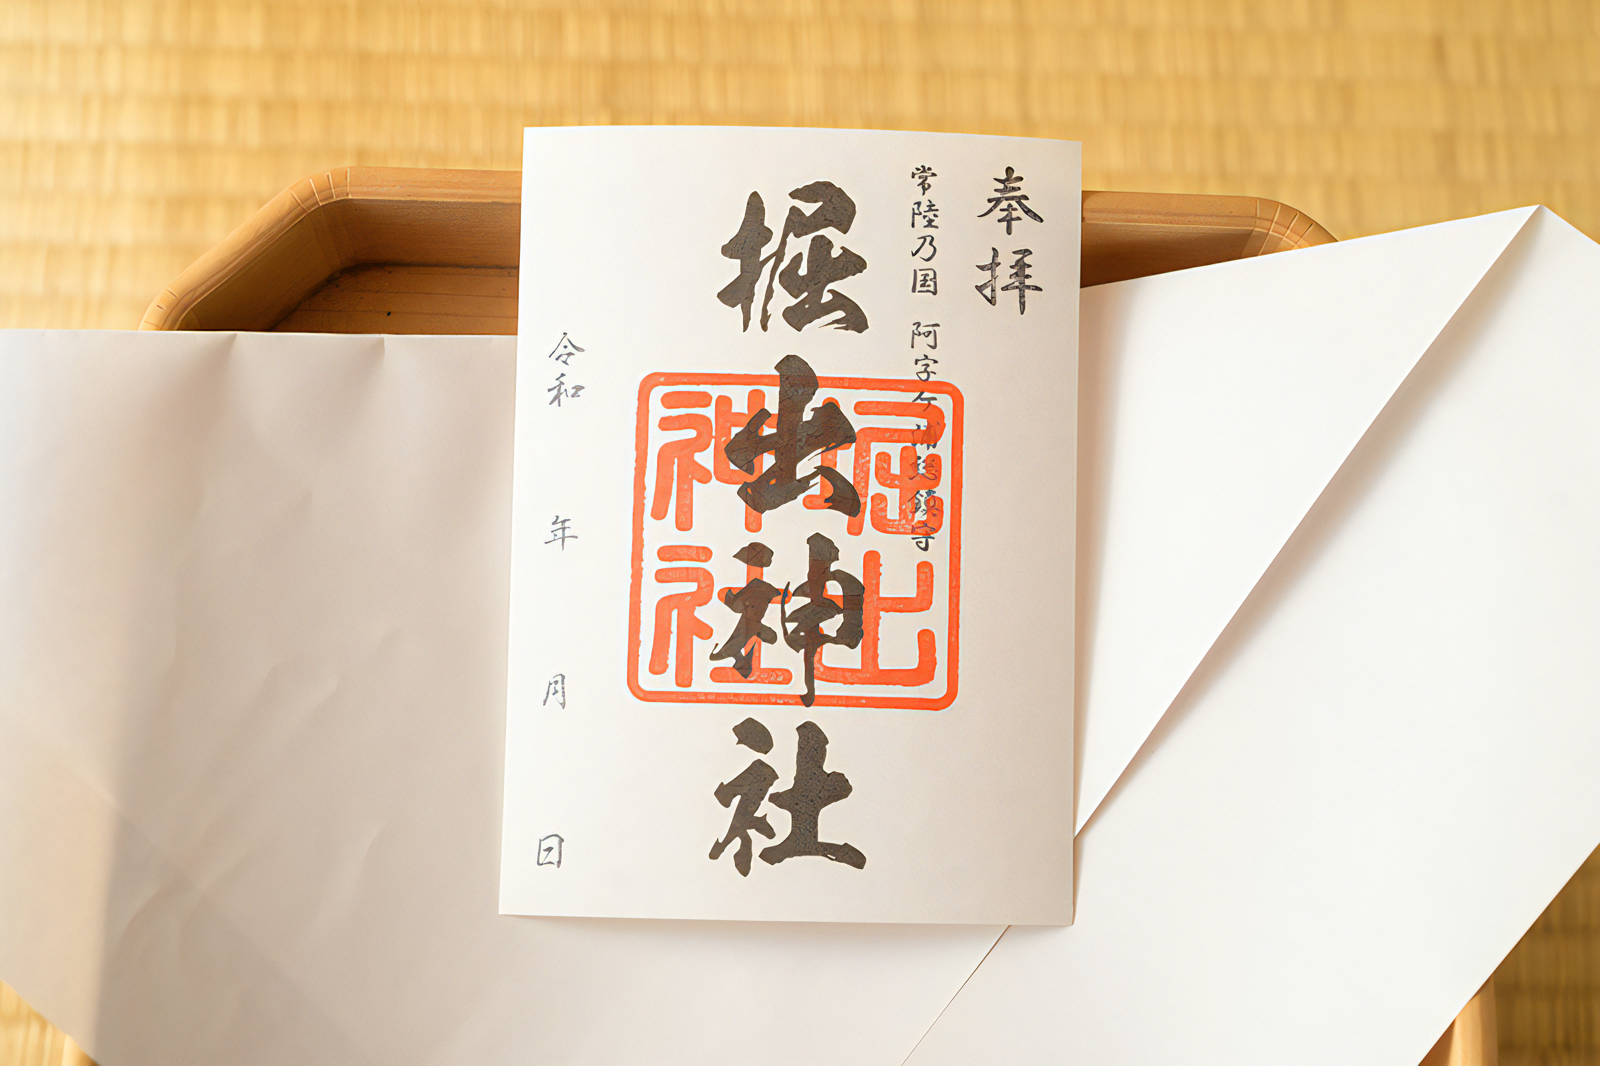 奉拝
常陸乃国 阿字ヶ浦総鎮守
掘出神社
堀出神社
令和 年 月 日